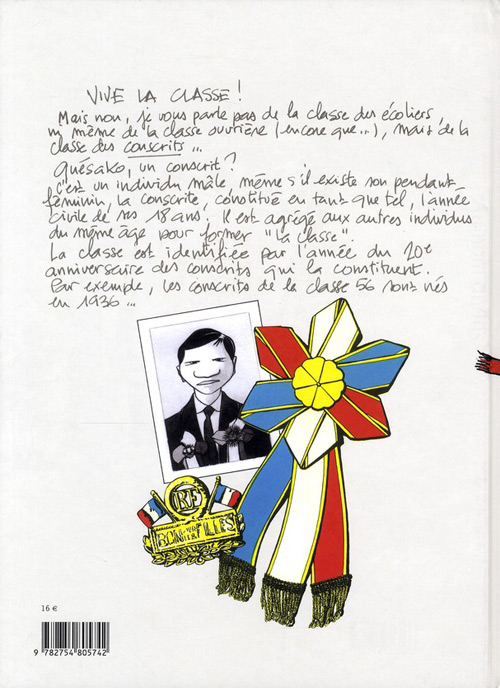 VIVE LA CLASSE !
Mais non, je vous parle pas de la classe des écoliers,
ni même de la classe ouvrière (encore que...), mais de la
classe des conscrits...
Quésako, un conscrit ?
C'est un individu mâle, même s'il existe son pendant
féminin, la conscrite, constitué en tant que tel, l'année
civile de ses 18 ans. Il est agrégé aux autres individus
du même âge pour former "la classe".
La classe est identifiée par l'année du 20e
anniversaire des conscrits qui la constituent.
Par exemple, les conscrits de la classe 56 sont nés
en 1936...
RF
BON
FILLES
16 €
9 782754 805742